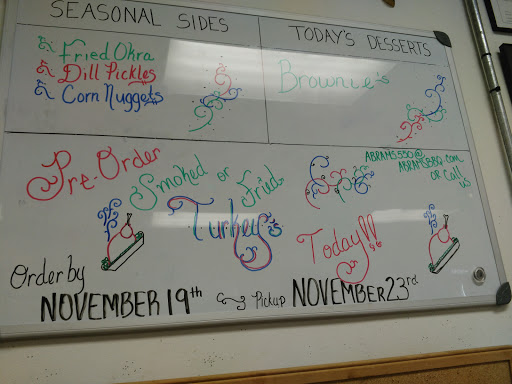 SEASONAL SIDES
Fried Okra
Dill Pickles
Corn Nuggets
TODAY'S DESSERTS
Brownie's
Pre-Order
Smoked or Fried
Turkey's
Today!!!
ABRAMS550@
ABRAMSBBQ.com
or Call
us
Order by
NOVEMBER 19th
Pickup NOVEMBER 23rd